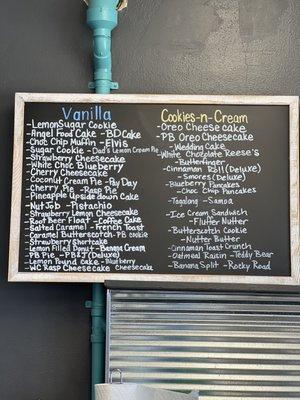 Vanilla
-Lemon Sugar Cookie
-Angel Food Cake -BD Cake
-Choc Chip Muffin -Elvis
-Sugar Cookie -Dad's Lemon Cream Pie
-Strawberry Cheesecake
-White Choc Blueberry
-Cherry Cheesecake
-Coconut Cream Pie -Pay Day
-Cherry Pie -Rasp Pie
-Pineapple Upside down Cake
-Nut Job -Pistachio
-Strawberry Lemon Cheesecake
-Root Beer Float -Coffee Cake
-Salted Caramel -French Toast
-Caramel Butterscotch -PB Cookie
-Strawberry Shortcake
-Lemon Filled Donut -Banana Cream
-PB Pie -PB&J (Deluxe)
-Lemon Pound Cake -Blueberry
-WC Rasp Cheesecake Cheesecake
Cookies-n-Cream
-Oreo Cheesecake
-PB Oreo Cheesecake
-Wedding Cake
-White Chocolate Reese's
-Butterfinger
-Cinnamon Roll (Deluxe)
-Smores (Deluxe)
-Blueberry Pancakes
-Choc Chip Pancakes
-Tagalong -Samoa
-Ice Cream Sandwich
-Fluffer Nutter
-Butterscotch Cookie
-Nutter Butter
-Cinnamon Toast Crunch
-Oatmeal Raisin -Teddy Bear
-Banana Split -Rocky Road